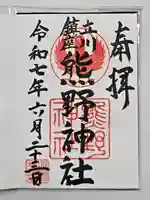 奉拝
立川
鎮座
熊野神社
令和七年六月二十三日